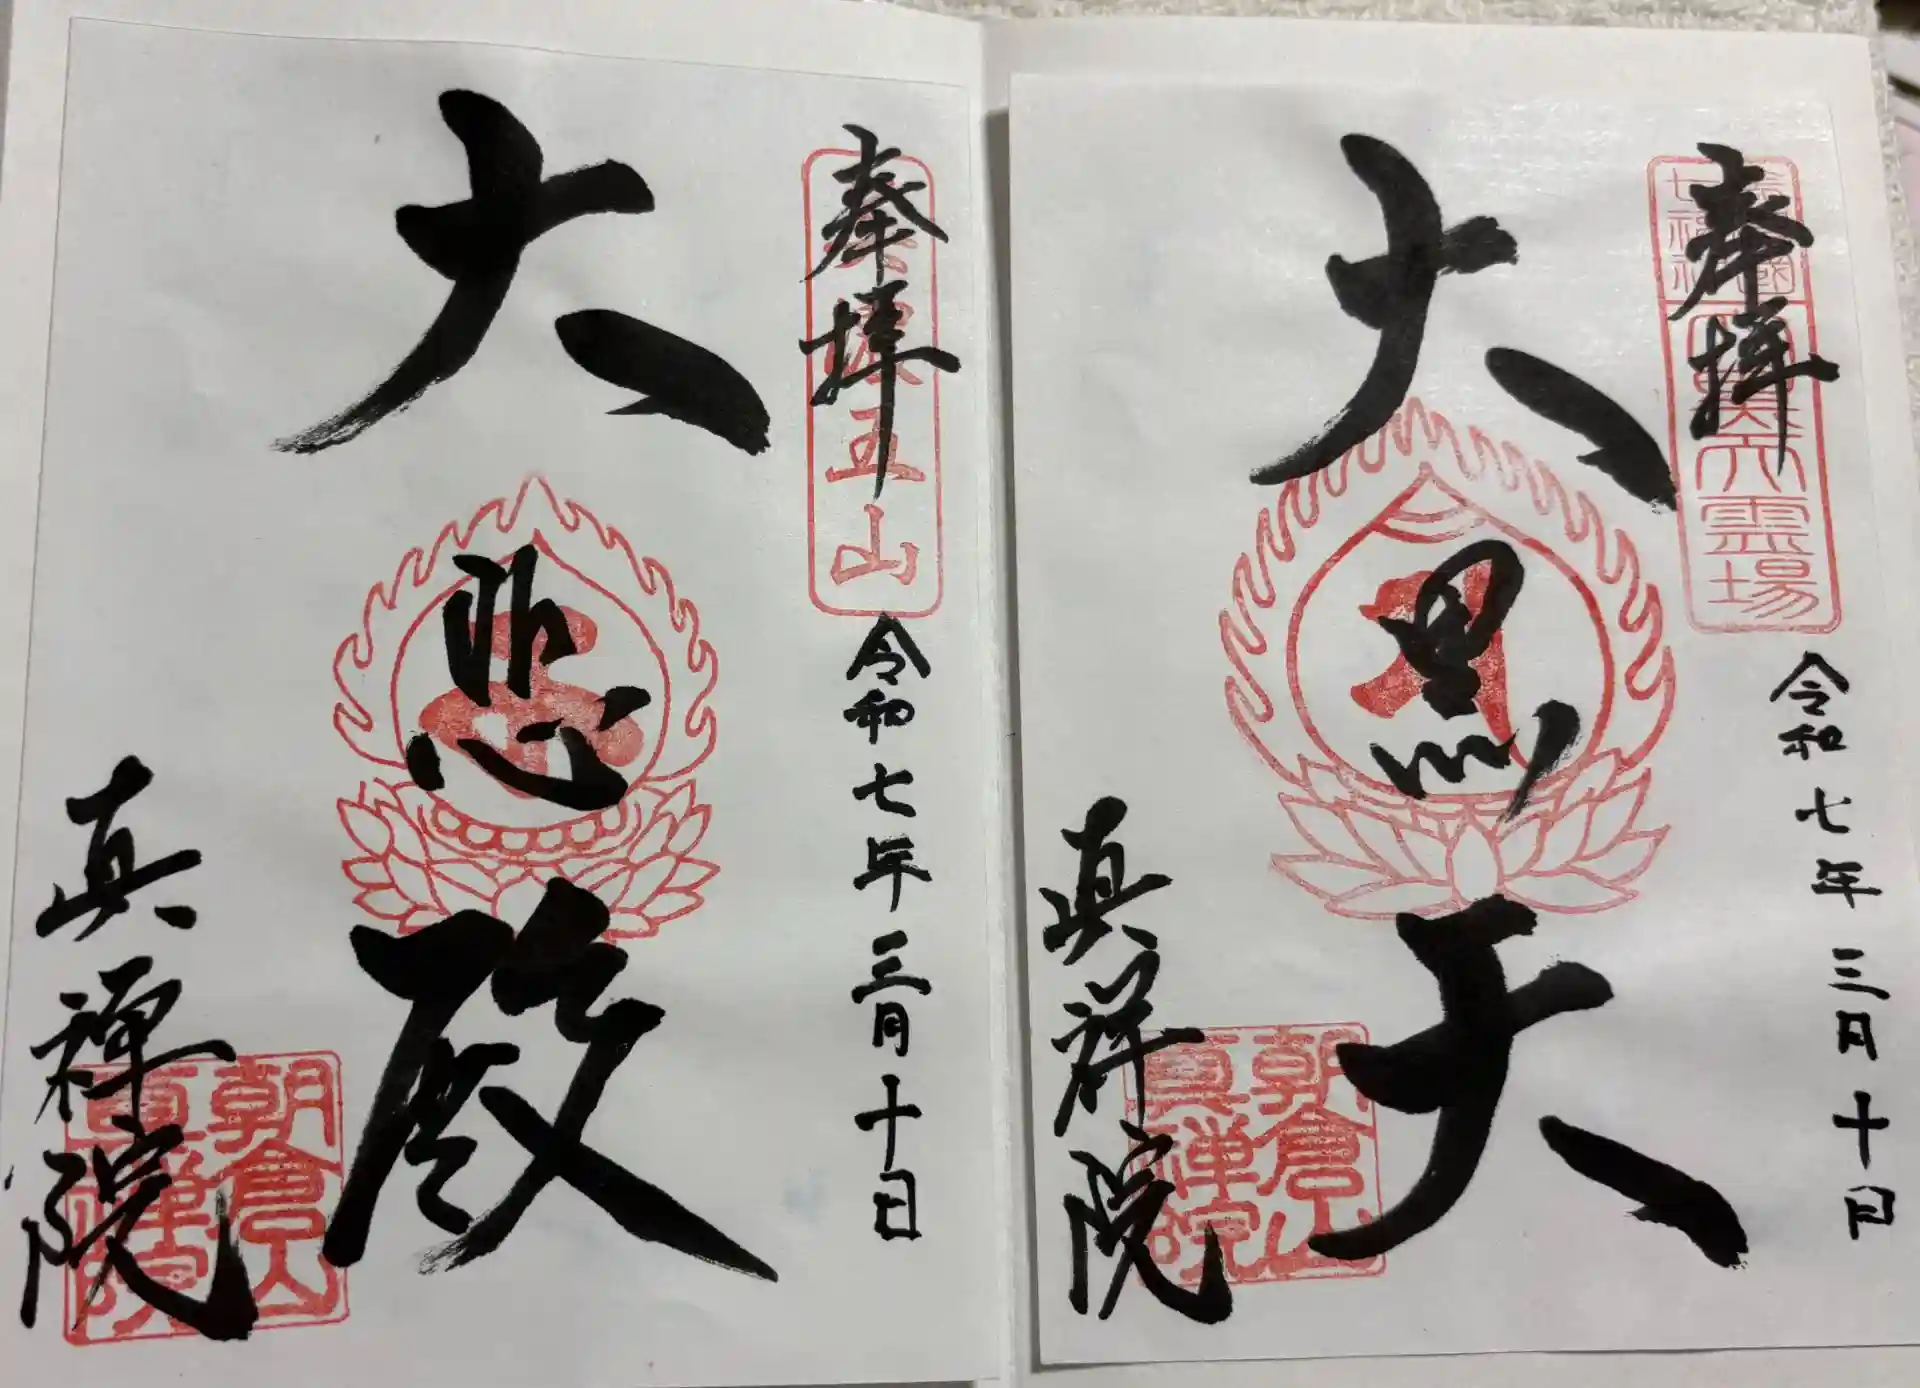 奉拝
大黒天
令和七年三月十日
真禅院
大霊場
朝倉山
真禅院
奉拝
五山
大悲殿
令和七年三月十日
真禅院
朝倉山
真禅院